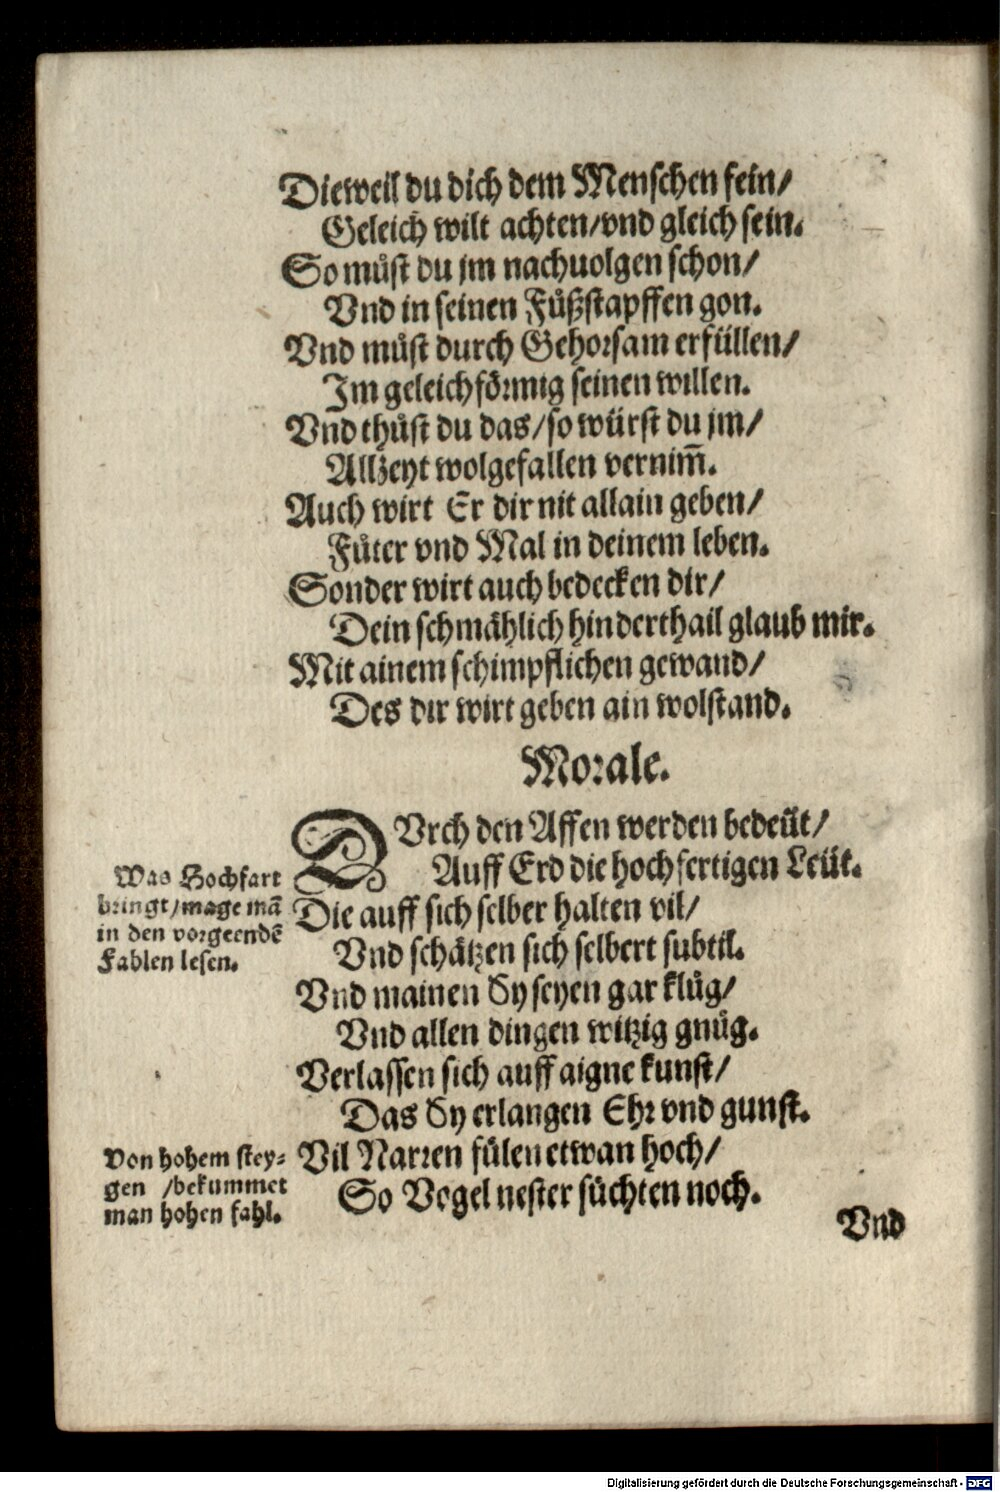 Dieweil du dich dem Menschen fein/
Geleich wilt achten/vnd gleich sein.
So můst du jm nachuolgen schon/
Vnd in seinen Fůßstapffen gon.
Vnd můst durch Gehorsam erfüllen/
Im geleichförmig seinen willen.
Vnd thůst du das/so würst du jm/
Allzeyt wolgefallen vernim̃.
Auch wirt Er dir nit allain geben/
Fůter vnd Mal in deinem leben.
Sonder wirt auch bedecken dir/
Dein schmählich hinderthail glaub mir.
Mit ainem schimpflichen gewand/
Des dir wirt geben ain wolstand.
Morale.
DVrch den Affen werden bedeüt/
Auff Erd die hochfertigen Leüt.
Die auff sich selber halten vil/
Vnd schätzen sich selbert subtil.
Vnd mainen Sy seyen gar klůg/
Vnd allen dingen witzig gnůg.
Verlassen sich auff aigne kunst/
Das Sy erlangen Ehr vnd gunst.
Vil Narren fülen etwan hoch/
So Vogel nester süchten noch.
Was Hochfart
bringt/mage mā
in den vorgeendē
Fablen lesen.
Von hohem stey-
gen /bekummet
man hohen fahl.
Vnd
Digitalisierung gefördert durch die Deutsche Forschungsgemeinschaft - DFG